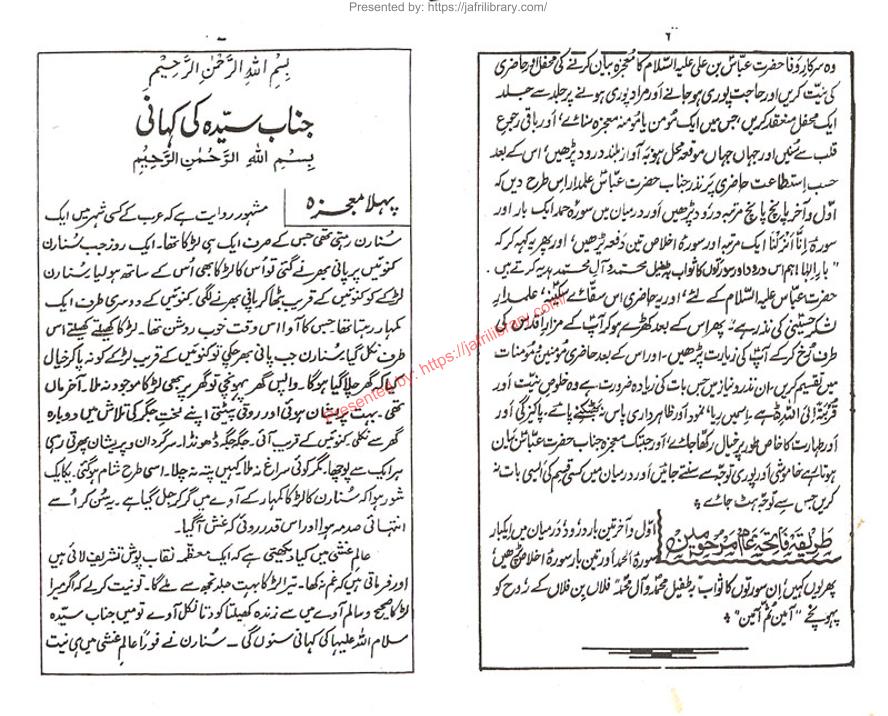 Presented by: https://jafrilibrary.com/
۶
وہ سرکارِ وفا حضرت عباسؑ بن علی علیہ السلام کا معجزہ بیان کرنے کی محفل اور حاضری
کی نیت کریں اور حاجت پوری ہو جانے اور مراد پوری ہونے پر جلد سے جلد
ایک محفل منعقد کریں، جس میں ایک مومن یا مومنہ معجزہ سنائے، اور باقی رجوعِ
قلب سے سنیں اور جہاں جہاں موقعہ محل ہو بہ آواز بلند درود پڑھیں، اس کے بعد
حسب استطاعت حاضری پر نذر جناب حضرت عباسؑ علمدار اس طرح دیں کہ
اوّل و آخر پانچ پانچ مرتبہ درود پڑھیں اور درمیان میں سورۂ حمد ایک بار اور
سورۂ اِنَّا اَنْزَلْنَا ایک مرتبہ اور سورۂ اخلاص تین دفعہ پڑھیں، اور پھر یہ کہہ کر کہ
"بارِ الہا! ہم اس درود اور سورتوں کا ثواب بہ طفیل محمدؐ و آلِ محمدؐ ہدیہ کرتے ہیں۔
حضرت عباس علیہ السلام کے لئے، اور یہ حاضری اس سقائے سکینہؑ، علمدارِ
لشکرِ حسینیؑ کی نذر ہے"، پھر اس کے بعد کھڑے ہو کر آپؑ کے مزارِ اقدس کی
طرف رُخ کر کے آپؑ کی زیارت پڑھیں۔ اور اس کے بعد حاضری مومنین و مومنات
میں تقسیم کریں، ان نذر و نیاز میں جس بات کی زیادہ ضرورت ہے وہ خلوصِ نیت اور
قربۃً الی اللہ ہے۔ اسمیں ریا، نمود اور ظاہر داری پاس نہ پھٹکنے پائے۔ پاکیزگی اور
اور طہارت کا خاص طور پر خیال رکھا جائے، اور جب تک معجزہ جناب حضرت عباسؑ بیان
ہوتا ہے خاموشی اور پوری توجہ سے سنتے جائیں اور درمیان میں کسی قسم کی ایسی بات نہ
کریں جس سے توجہ ہٹ جائے۔
طریقہ فاتحہ عام مرحومین
اوّل و آخر تین بار درود درمیان میں ایکبار
سورۂ الحمد اور تین بار سورۂ اخلاص پڑھیں
پھر یوں کہیں، اِن سورتوں کا ثواب بہ طفیل محمدؐ و آلِ محمدؐ، فلاں بن فلاں کے روح کو
پہونچے "آمین ثم آمین"
بِسْمِ اللهِ الرَّحْمٰنِ الرَّحِيْمِ
جناب سیّدہ کی کہانی
بِسْمِ اللهِ الرَّحْمٰنِ الرَّحِيْمِ
پہلا معجزہ
مشہور روایت ہے کہ عرب کے کسی شہر میں ایک
سُنارن رہتی تھی جس کے صرف ایک ہی لڑکا تھا۔ ایک روز جب سُنارن
کنوئیں پر پانی بھرنے گئی تو اُس کا لڑکا بھی اُس کے ساتھ ہو لیا۔ سُنارن
لڑکے کو کنوئیں کے قریب بٹھا کر پانی بھرنے لگی۔ کنوئیں کے دوسری طرف ایک
کمہار رہتا تھا جس کا آوا اس وقت خوب روشن تھا۔ لڑکا کھیلتے کھیلتے اس
طرف نکل گیا، سُنارن جب پانی بھر چکی تو کنوئیں کے قریب لڑکے کو نہ پا کر خیال
کیا کہ گھر چلا گیا ہوگا۔ واپس گھر پہونچی تو گھر پر بھی لڑکا موجود نہ ملا۔ آخر ماں
تھی۔ بہت پریشان ہوئی اور روتی پیٹتی اپنے لختِ جگر کی تلاش میں دوبارہ
گھر سے نکلی۔ کنوئیں کے قریب آئی۔ جگہ جگہ ڈھونڈا۔ سرگرداں و پریشان پھرتی رہی
ہر ایک سے پوچھا۔ مگر کوئی سراغ نہ ملا کہیں پتہ نہ چلا۔ اسی طرح شام ہو گئی۔ یکایک
شور ہوا کہ سُنارن کا لڑکا کمہار کے آوے میں گر کر جل گیا ہے۔ یہ سُن کر اُسے
انتہائی صدمہ ہوا اور اس قدر روئی کہ غش آ گیا۔
عالمِ غشی میں کیا دیکھتی ہے کہ ایک معظمہ نقاب پوش تشریف لائی ہیں
اور فرماتی ہیں کہ غم نہ کھا۔ تیرا لڑکا بہت جلد تجھ سے ملے گا۔ تو نیت کر لے کہ اگر میرا
لڑکا صحیح و سالم آوے میں سے زندہ کھیلتا کودتا نکل آوے تو میں جناب سیّدہ
سلام اللہ علیہا کی کہانی سنوں گی۔ سُنارن نے فوراً عالمِ غشی میں ہی نیت
Presented by: https://jafrilibrary.com/